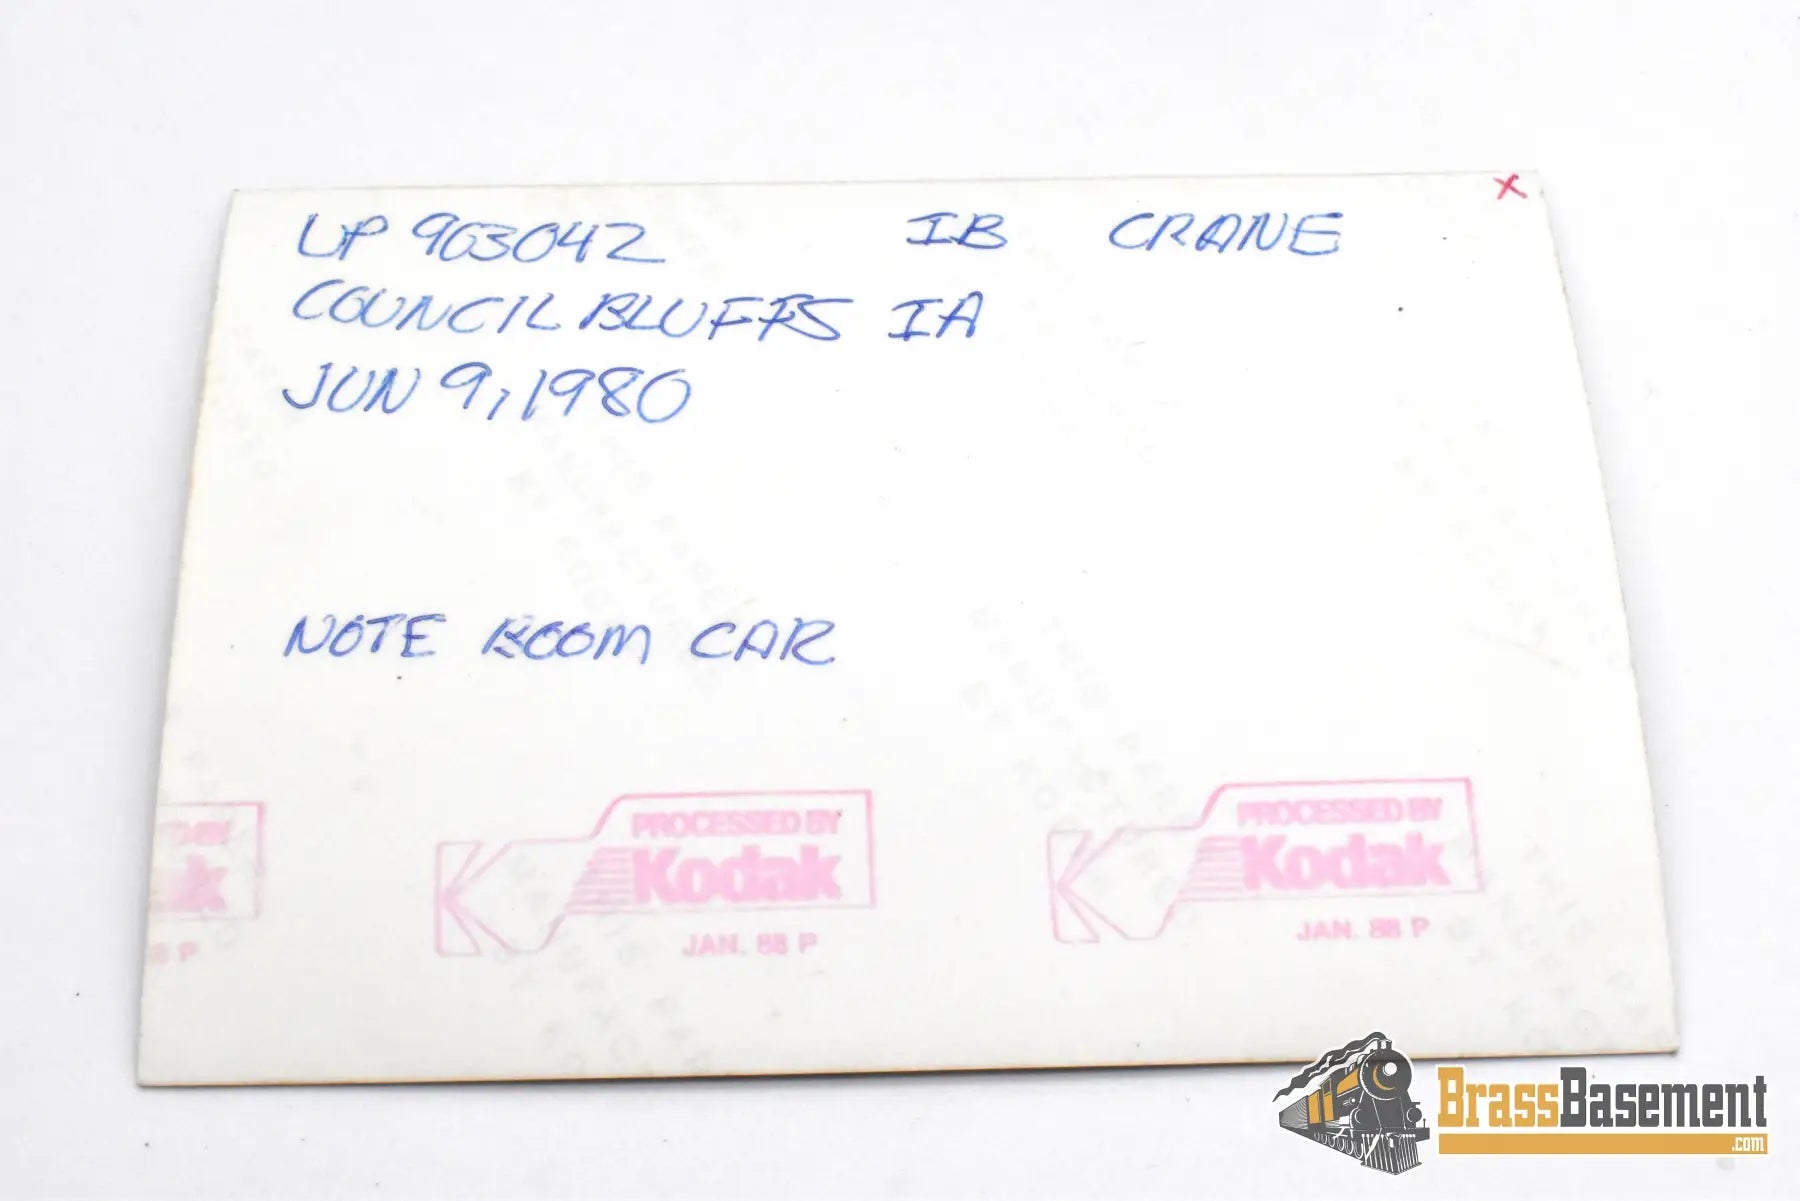 UP 903042 IB CRANE
COUNCIL BLUFFS IA
JUN 9, 1980
NOTE BOOM CAR
PROCESSED BY
Kodak
JAN. 88 P
PROCESSED BY
Kodak
JAN. 88 P
BrassBasement
.com